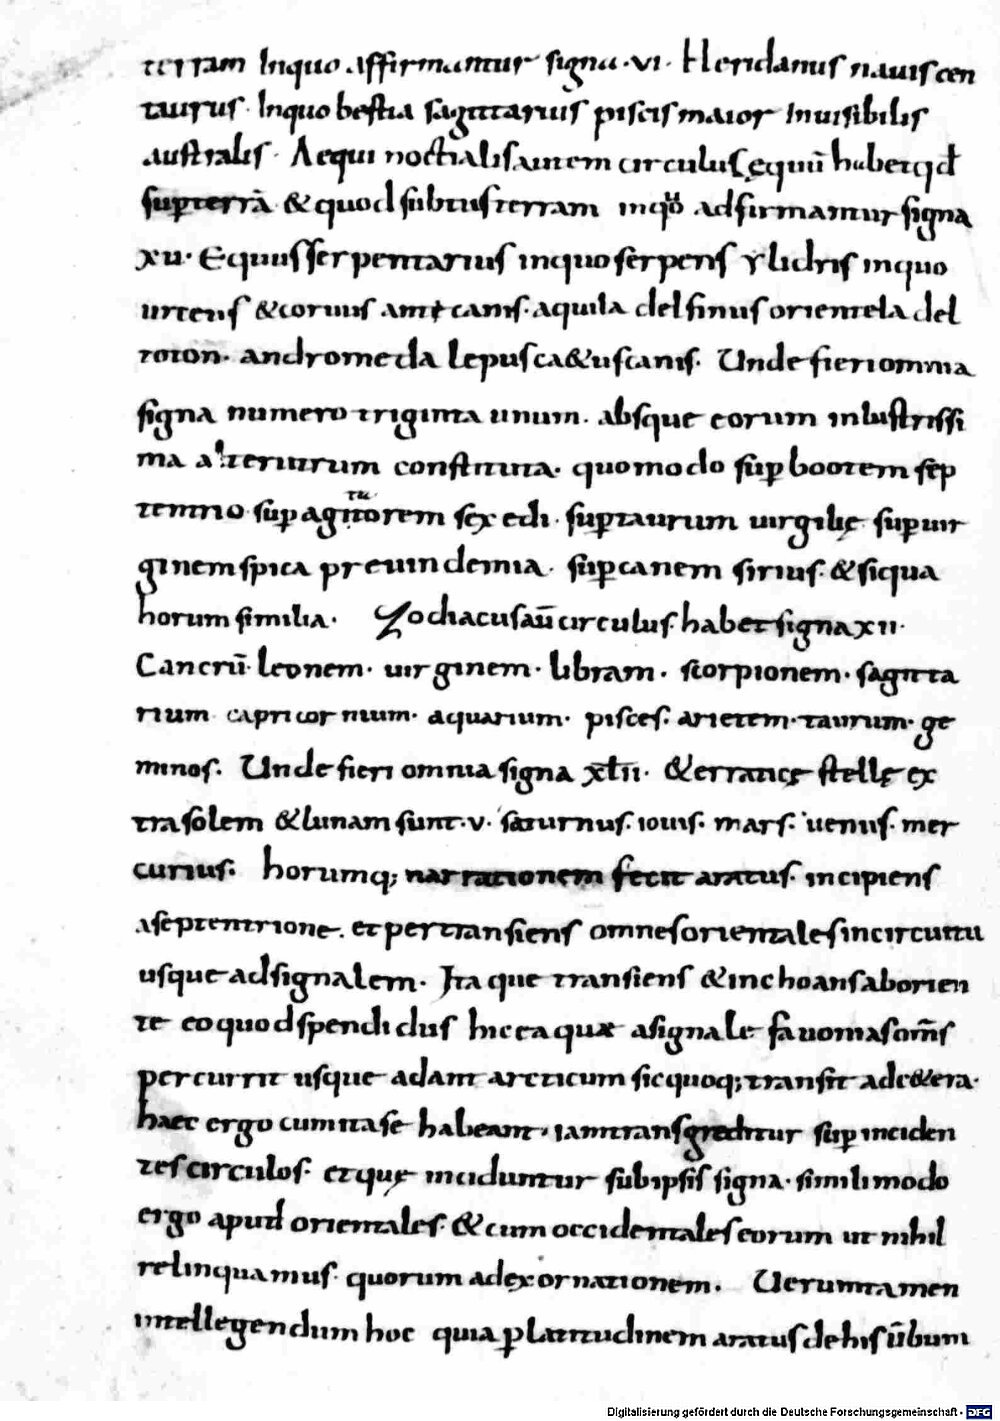 terram Inquo affirmantur signa·vi· Heridanus nauis cen
taurus· Inquo bestia sagittarius piscis maior Inuisibilis
australis· Aequi noctialis autem circulus ęquū habet qđ
sup terrā & quod subtus terram inquo adfirmantur signa
xii· Equus serpentarius inquo serpens Ylidris inquo
urtens & coruus ante canis· aquila delfinus orientela del
toton· andromeda lepus ca&us canis· Unde fieri omnia
signa numero triginta unum· absque eorum inlustrissi
ma alteriutrum constituta· quomodo sup bootem sep
temtrio sup agitatorem sex edi· sup taurum uirgilię sup uir
ginem spica preuindemia· sup canem sirius· & siqua
horum similia· Zodiacus aū circulus habet signa xii·
Cancrū· leonem· uirginem· libram· scorpionem· sagitta
rium capricornium· aquarium· pisces· arietem· taurum· ge
minos· Unde fieri omnia signa xlii· & errantę stellę ex
tra solem & lunam sunt·v· saturnus· iouis· mars· uenus· mer
curius· horumq; narrationem fecit aratus· incipiens
aseptentrione· et pertransiens omnes orientales incircuitu
usque ad signalem· Ita que transiens & inchoans aborien
te eo quod spendi dus hicea quae asignale fauomas om̄s
percurrit usque adant arcticum sic quoq; transit ad c&era·
haec ergo cum ita se habeant· iam transgreditur sup inciden
tes circulos· et quę inciduntur sub ipsis signa· simili modo
ergo apud orientales· & cum occidentales eorum ut nihil
relinquamus· quorum adexornationem· Uerumtamen
intellegendum hoc quia p latitudinem aratus de his ūbum
Digitalisierung gefördert durch die Deutsche Forschungsgemeinschaft - DFG